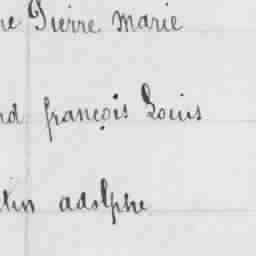 ne Pierre Marie
nd françois Louis
tin adolphe